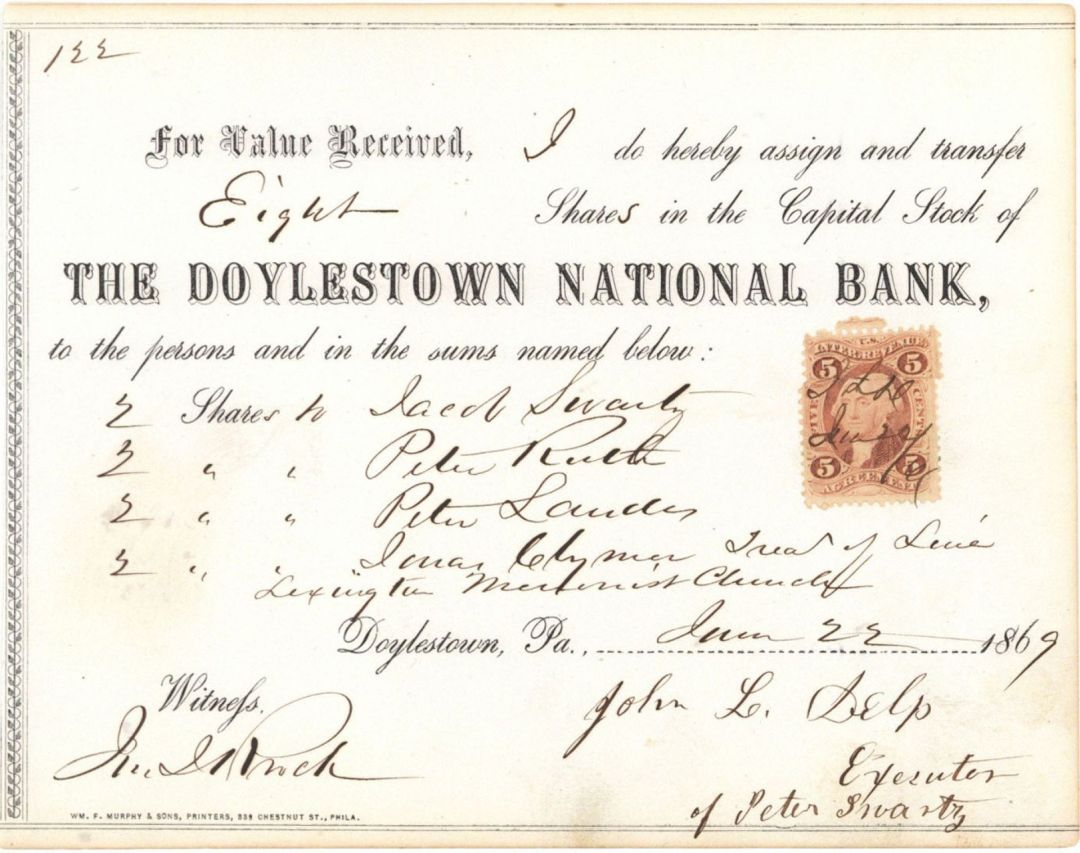 122
For Value Received, I do hereby assign and transfer
Eight Shares in the Capital Stock of
THE DOYLESTOWN NATIONAL BANK,
to the persons and in the sums named below:
2 Shares to Jacob Swartz
2 " " Peter Ruth
2 " " Peter Landes
2 " " Jonas Clymer Treas of Line
Lexington Mennonist Church
Doylestown, Pa., June 22 1869
Witness,
John L. Delp
Executor
of Peter Swartz
WM. F. MURPHY & SONS, PRINTERS, 339 CHESTNUT ST., PHILA.
U.S.
INTER. REVENUE
5 5
FIVE CENTS
5 5
AGREEMENT